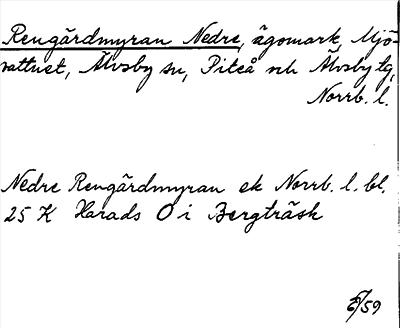 Rengårdmyran Nedre, ägomark, Mjö-
vattnet, Älvsby sn, Piteå och Älvsby tg,
Norrb. l.
Nedre Rengårdmyran ek Norrb. l. bl.
25 K Harads Ö i Bergträsk
/59